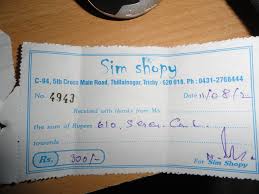 Sim shopy
C-94, 5th Cross Main Road, Thillainagar, Trichy - 620 018. Ph : 0431-2768444
No. 4943
Received with thanks from Mr.
the sum of Rupees 610,
towards
Rs. 300/-
For Sim Shopy